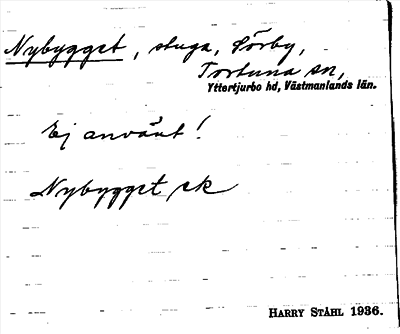 Nybygget, stuga, Sörby,
Tortuna sn,
Yttertjurbo hd, Västmanlands län.
Ej använt!
Nybygget, ek
HARRY STÅHL 1936.